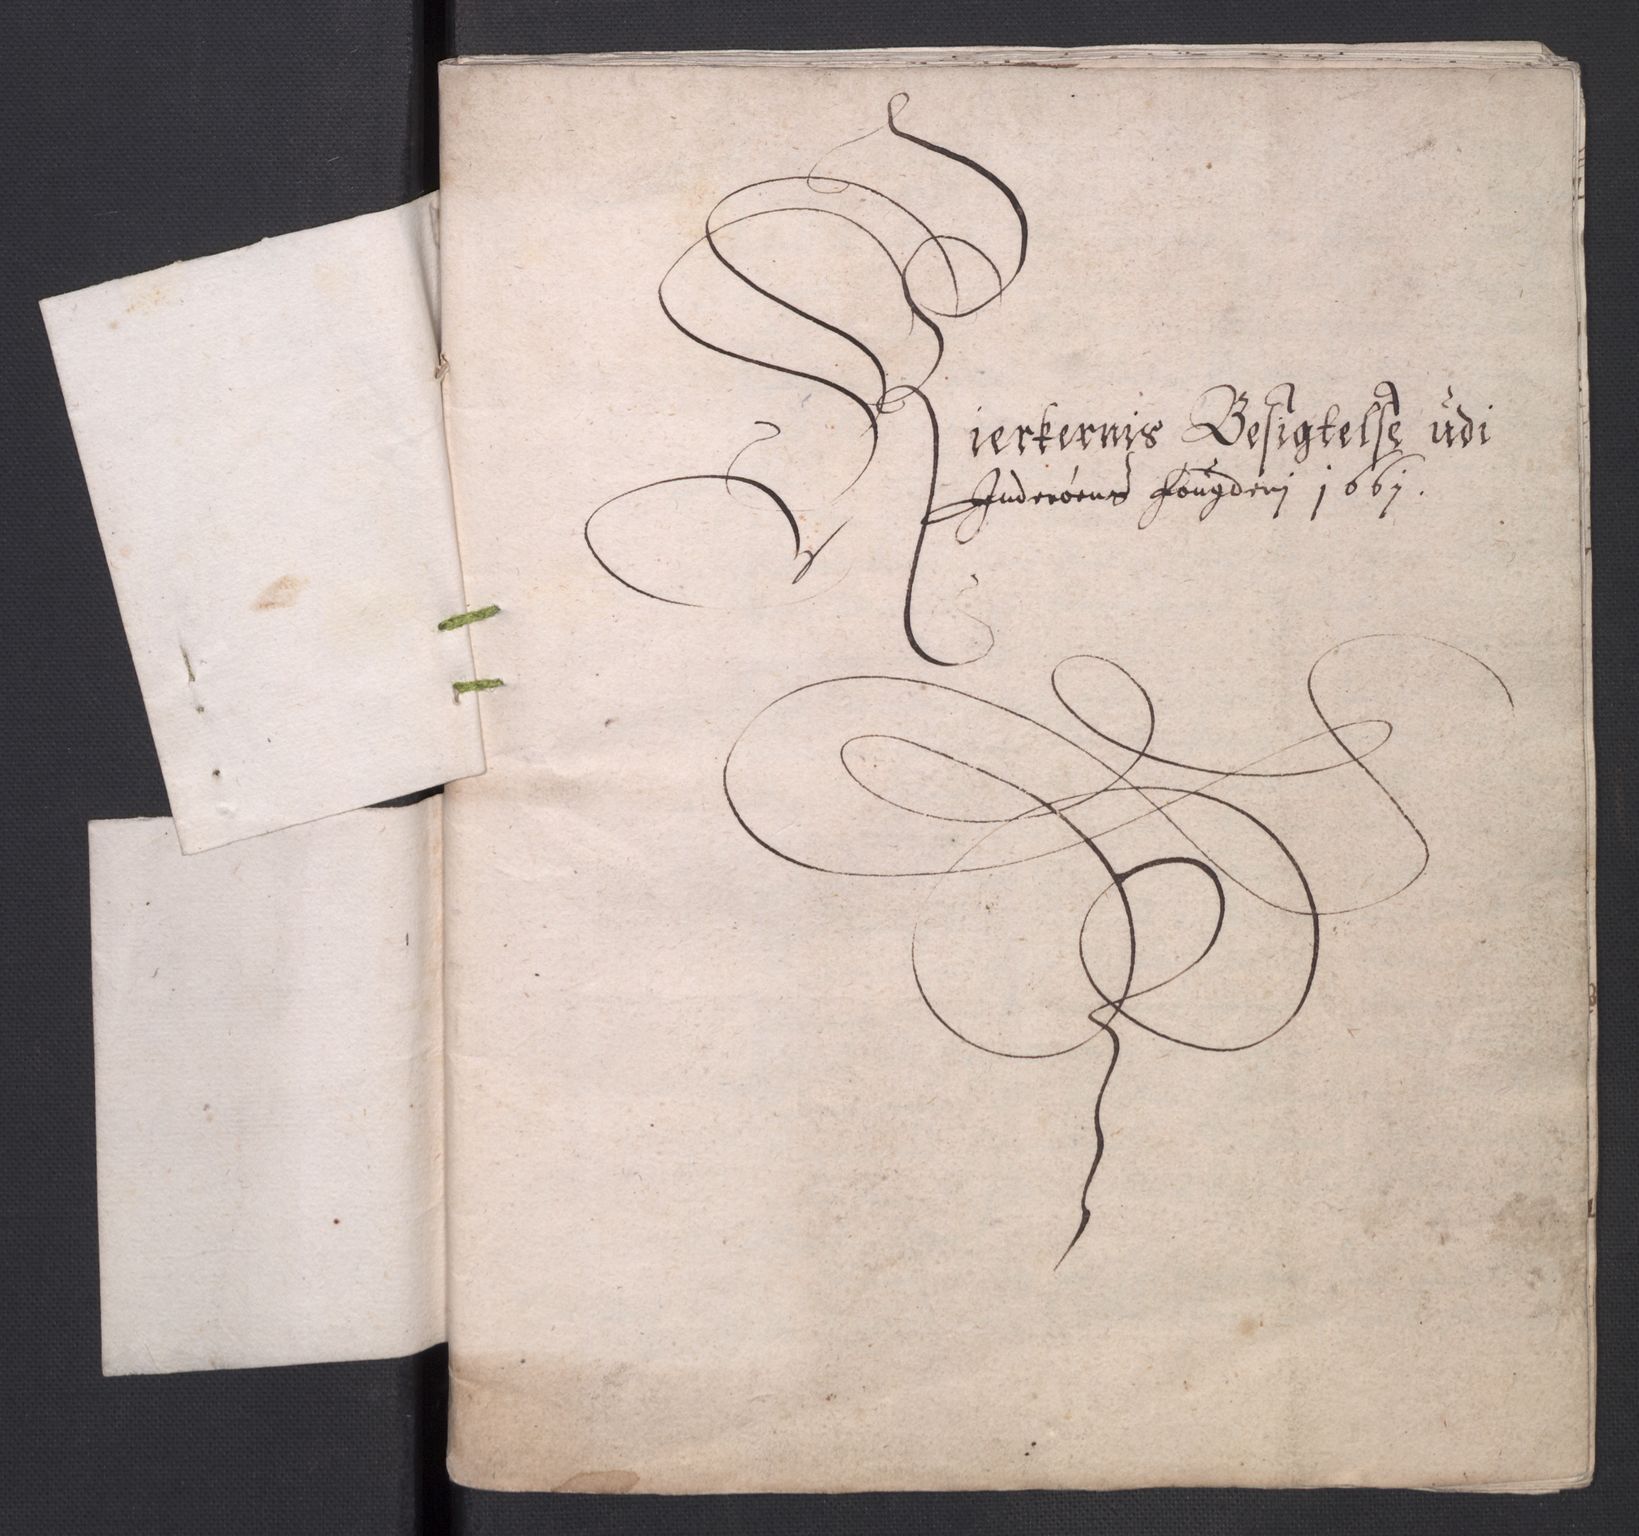 Kierkernis Besigtelse udi
Inderøens fougderj 1661.